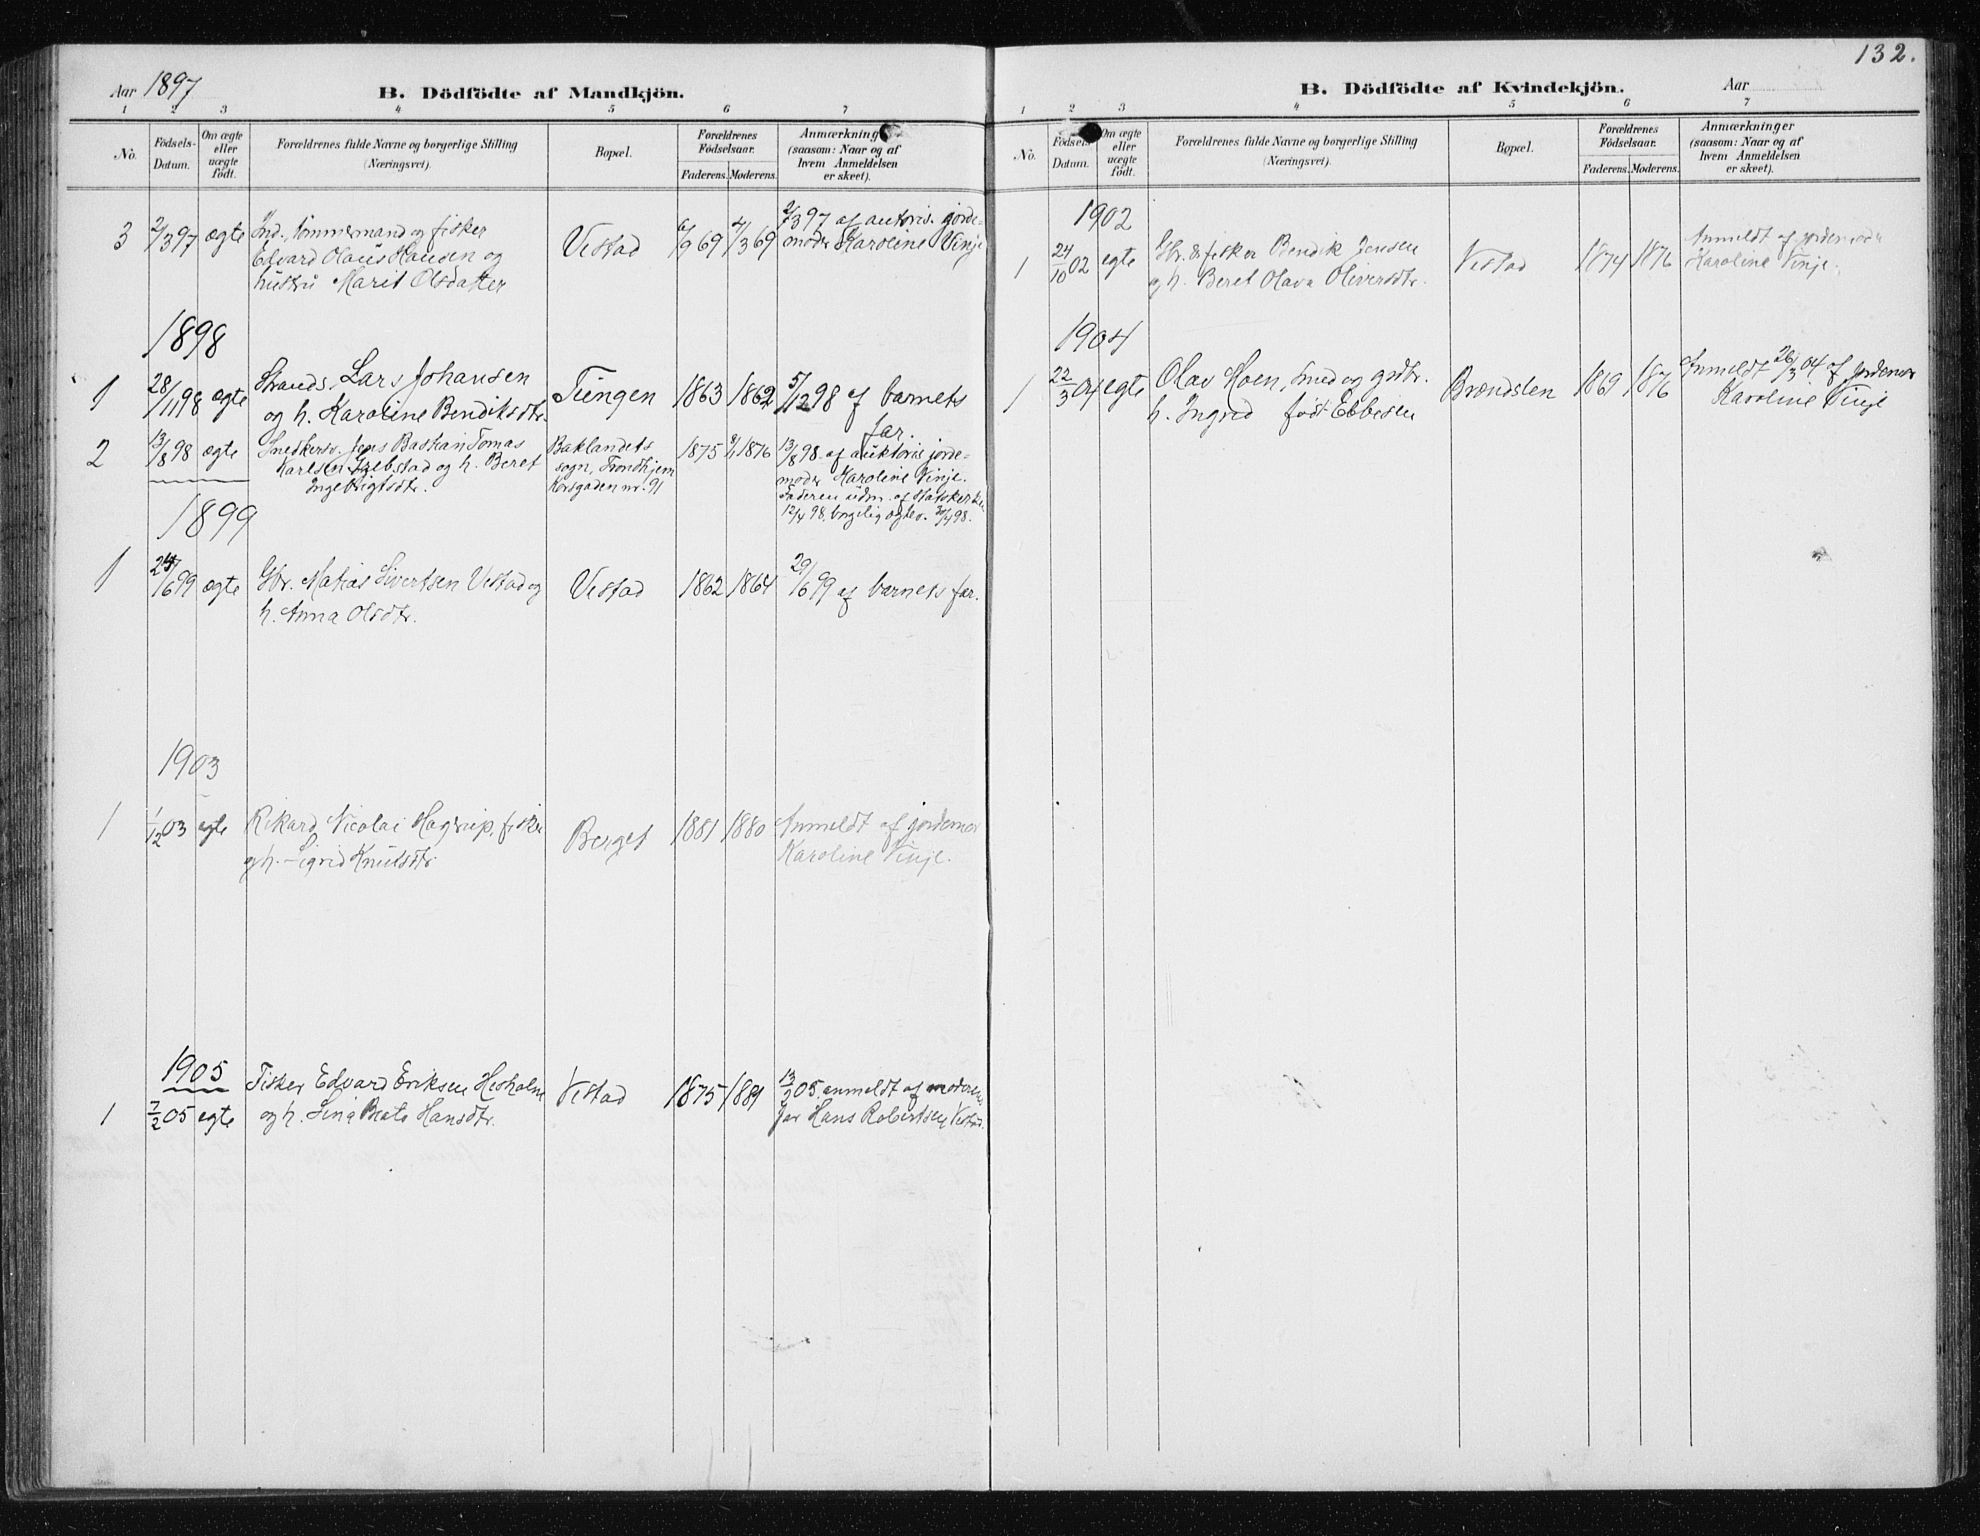 132.
Aar 1897
B. Dödfödte af Mandkjön.
1 2 3 4 5 6 7
No.
Födsels-
Datum.
Om ægte
eller
uægte
födt.
Forældrenes fulde Navne og borgerlige Stilling
(Næringsvei).
Bopæl.
Forældrenes
Födselsaar.
Faderens. Moderens.
Anmærkninger
(saasom: Naar og af
hvem Anmeldelsen
er skeet).
3 2/3 97 ægte Ind., tømmermand og fisker
Edvard Olaus Hansen og
hustru Marit Olsdatter
Vestad 6/9 69 4/3 69
2/3 97 af autoris. jorde-
moder Karoline Vinje
1898
1 28/11 98 ægte Strands. Lars Johansen
og h. Karoline Bendiksdtr.
Tiengen 1863 1862 5/12 98 af barnets
far.
2 13/8 98 ægte Snedkersv. Jens Bastian Tomas
Karlsen og h. Beret
Ingebrigtsdtr.
Baklandets
sogn, Trondhjem
Korsgaden nr. 91
1875 1876
13/8 98 af auktoris jorde-
moder Karoline Vinje.
Faderen udm. af statskirken
12/4 98, borgelig egtev. 30/4 98.
1899
1 24/6 99 ægte Gbr. Matias Sivertsen Vestad og
h. Anna Olsdtr.
Vestad 1862 1864 29/6 99 af barnets far.
1903
1 1/12 03 egte Rikard Nicolai Hagerup, fisker
og h. Sigrid Knutsdtr.
Berget 1881 1880 Anmeldt af jordemor
Karoline Vinje.
1905
1 7/2 05 egte Fisker Edvard Eriksen Hesholm
og h. Lina Beate Hansdtr.
Vestad 1875 1881 13/2 05 anmeldt af moderens
far Hans Robertsen, Vestad.
B. Dödfödte af Kvindekjön.
Aar
1 2 3 4 5 6 7
No.
Födsels-
Datum.
Om ægte
eller
uægte
födt.
Forældrenes fulde Navne og borgerlige Stilling
(Næringsvei).
Bopæl.
Forældrenes
Födselsaar.
Faderens. Moderens.
Anmærkninger
(saasom: Naar og af
hvem Anmeldelsen
er skeet).
1902
1 24/10 02 egte Gbr. & fisker Bendik Jensen
og h. Beret Olava Oliversdtr.
Vestad 1874 1876 Anmeldt af jordemoder
Karoline Vinje.
1904
1 22/3 04 egte Olav Hoen, smed og grdbr.
h. Ingrid født Ebbesen
Brændslen 1869 1876 Anmeldt 26/3 04 af jordemor
Karoline Vinje